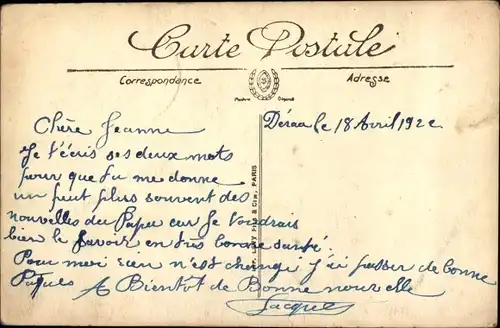 Carte Postale
Correspondance
Adresse
Marque Déposé
le 18 Avril 1922
Chère Jeanne
Je t'écris ses deux mots
pour que tu me donne
un peut plus souvent des
nouvelles du Papa car Je voudrais
bien le savoir en très bonne santé.
Pour moi rien n'est changé j'ai passer de bonne
Pâques A Bientot de Bonne nouvelle
Jacques
& Cie, PARIS